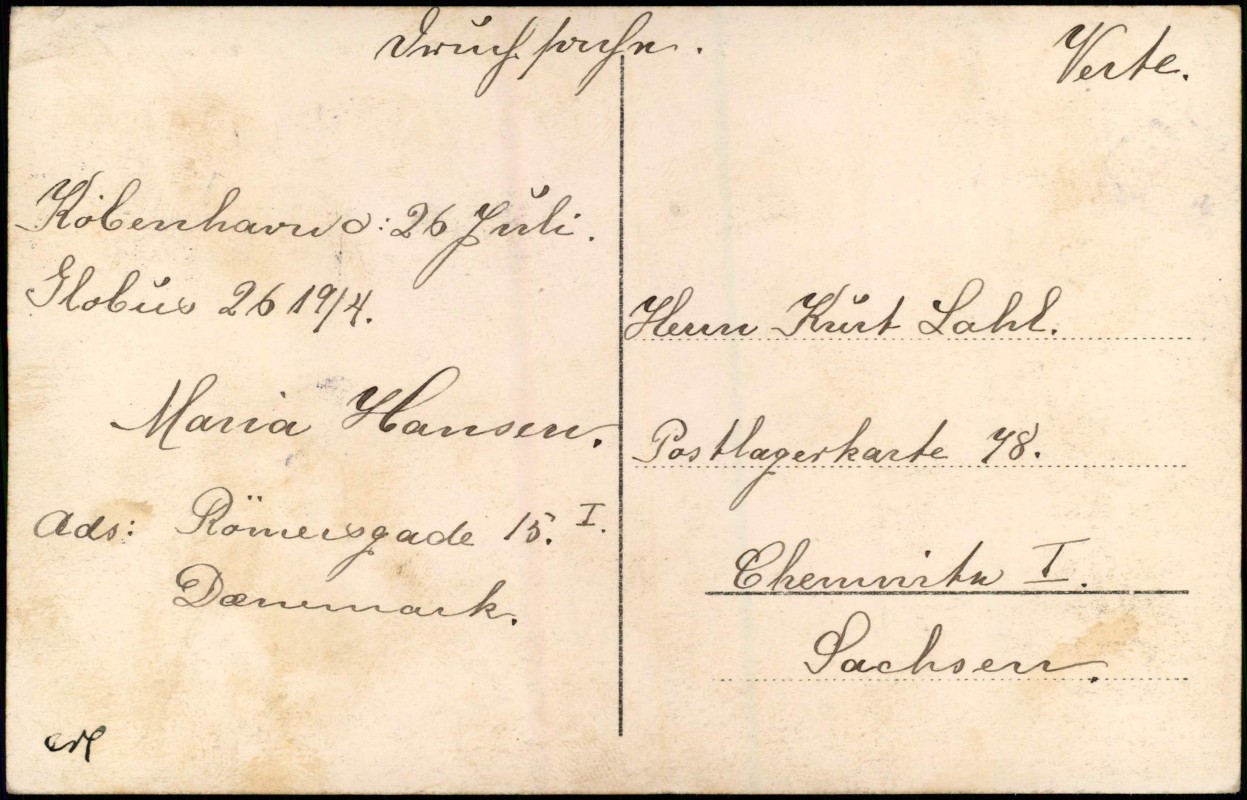 Drucksache.
Verte.
Köbenhavn d: 26 Juli.
Globus 26 19/4.
Maria Hansen.
Ads: Römersgade 15. I.
Dænemark.
erl
Herrn Kurt Lahl.
Postlagerkarte 78.
Chemnitz I.
Sachsen.